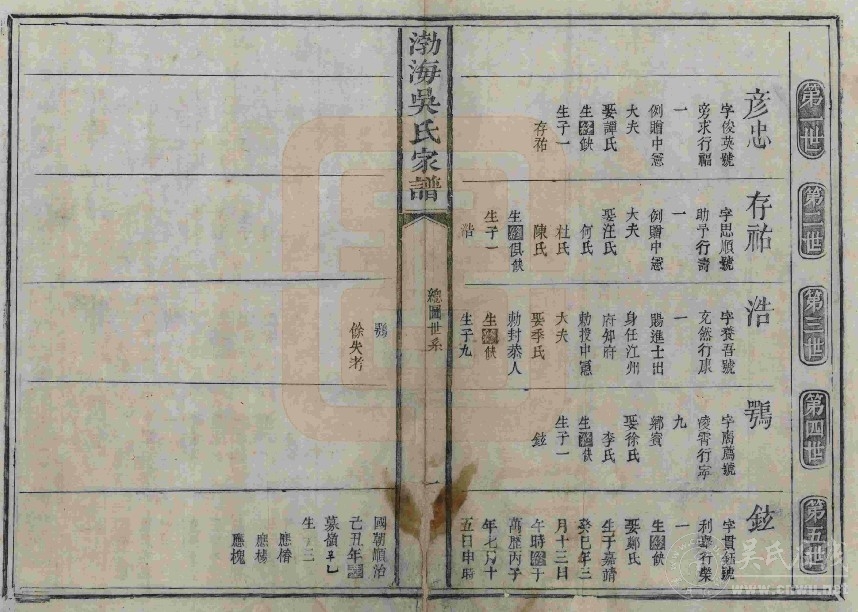 第一世
彦忠
字俊英號
旁求行福
一
例贈中憲
大夫
娶譚氏
生缺
生子一
存祐
第二世
存祐
字思順號
助予行壽
一
例贈中憲
大夫
娶汪氏
何氏
杜氏
陳氏
生俱缺
生子一
浩
第三世
浩
字養吾號
充然行康
一
賜進士出
身任江州
府知府
勅授中憲
大夫
娶季氏
勅封恭人
生缺
生子九
鶚
餘失考
第四世
鶚
字南薦號
凌霄行寧
九
鄉賓
娶徐氏
李氏
生缺
生子一
鉉
第五世
鉉
字貫鈺號
利舉行榮
一
生缺
娶鄭氏
生于嘉靖
癸巳年二
月十三日
午時于
萬歷丙子
年七月十
五日申時
渤海吳氏家譜
總圖世系
一
國朝順治
己丑年
墓嶺
生三
應僧
應椿
應槐
吳氏在线
www.cnwu.net